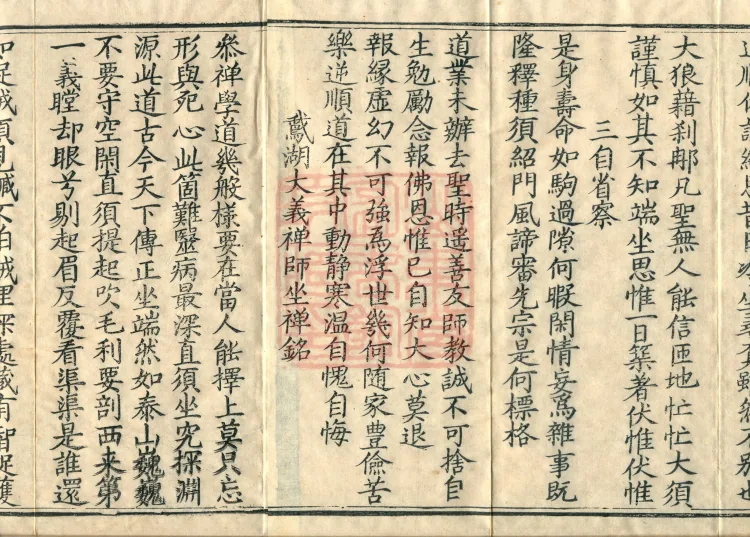 大狼藉刹那凡聖無人能信匝地忙忙大須
謹慎如其不知端坐思惟一日築著伏惟伏惟
三自省察
是身壽命如駒過隙何暇閑情妄爲雜事既
隆釋種須紹門風諦審先宗是何標格
道業未辦去聖時遙善友師教誡不可捨自
生勉勵念報佛恩惟已自知大心莫退
報緣虛幻不可強爲浮世幾何隨家豊儉苦
樂逆順道在其中動静寒温自愧自悔
鵞湖大義禪師坐禪銘
叅禪學道幾般樣要在當人能擇上莫只忘
形與死心此箇難毉病最深直須坐究探淵
源此道古今天下傳正坐端然如泰山巍巍
不要守空閑直須提起吹毛利要剖西来第
一義瞠却眼兮剔起眉反覆看渠渠是誰還
如捉賊須見贓不怕賊埋深處藏有智捉獲